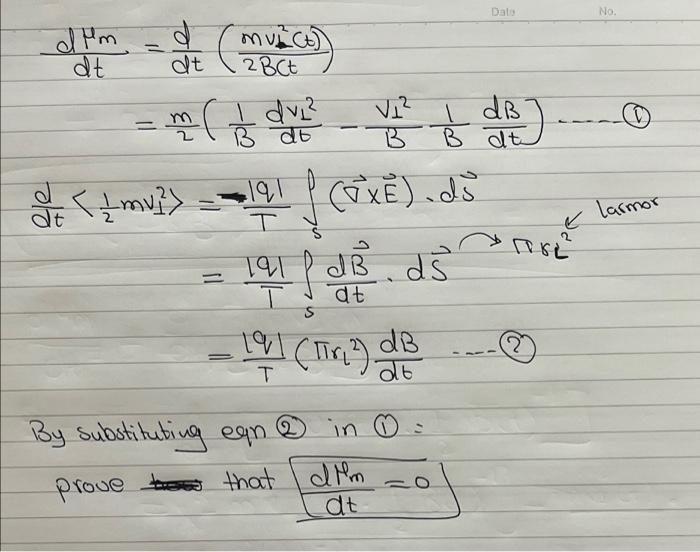 Date No.
dμm/dt = d/dt (mv⊥²(t)/2B(t)
= m/2 (1/B dv⊥²/dt - v⊥²/B 1/B dB/dt) ------ ①
d/dt <1/2 mv⊥²> = -|q|/T ∫s (∇⃗×E⃗).ds⃗
larmor
= |q|/T ∫s dB⃗/dt . dS⃗ → πrL²
= |q|/T (πrL²) dB/dt ---- ②
By substituting eqn ② in ① :
prove that dμm/dt = 0